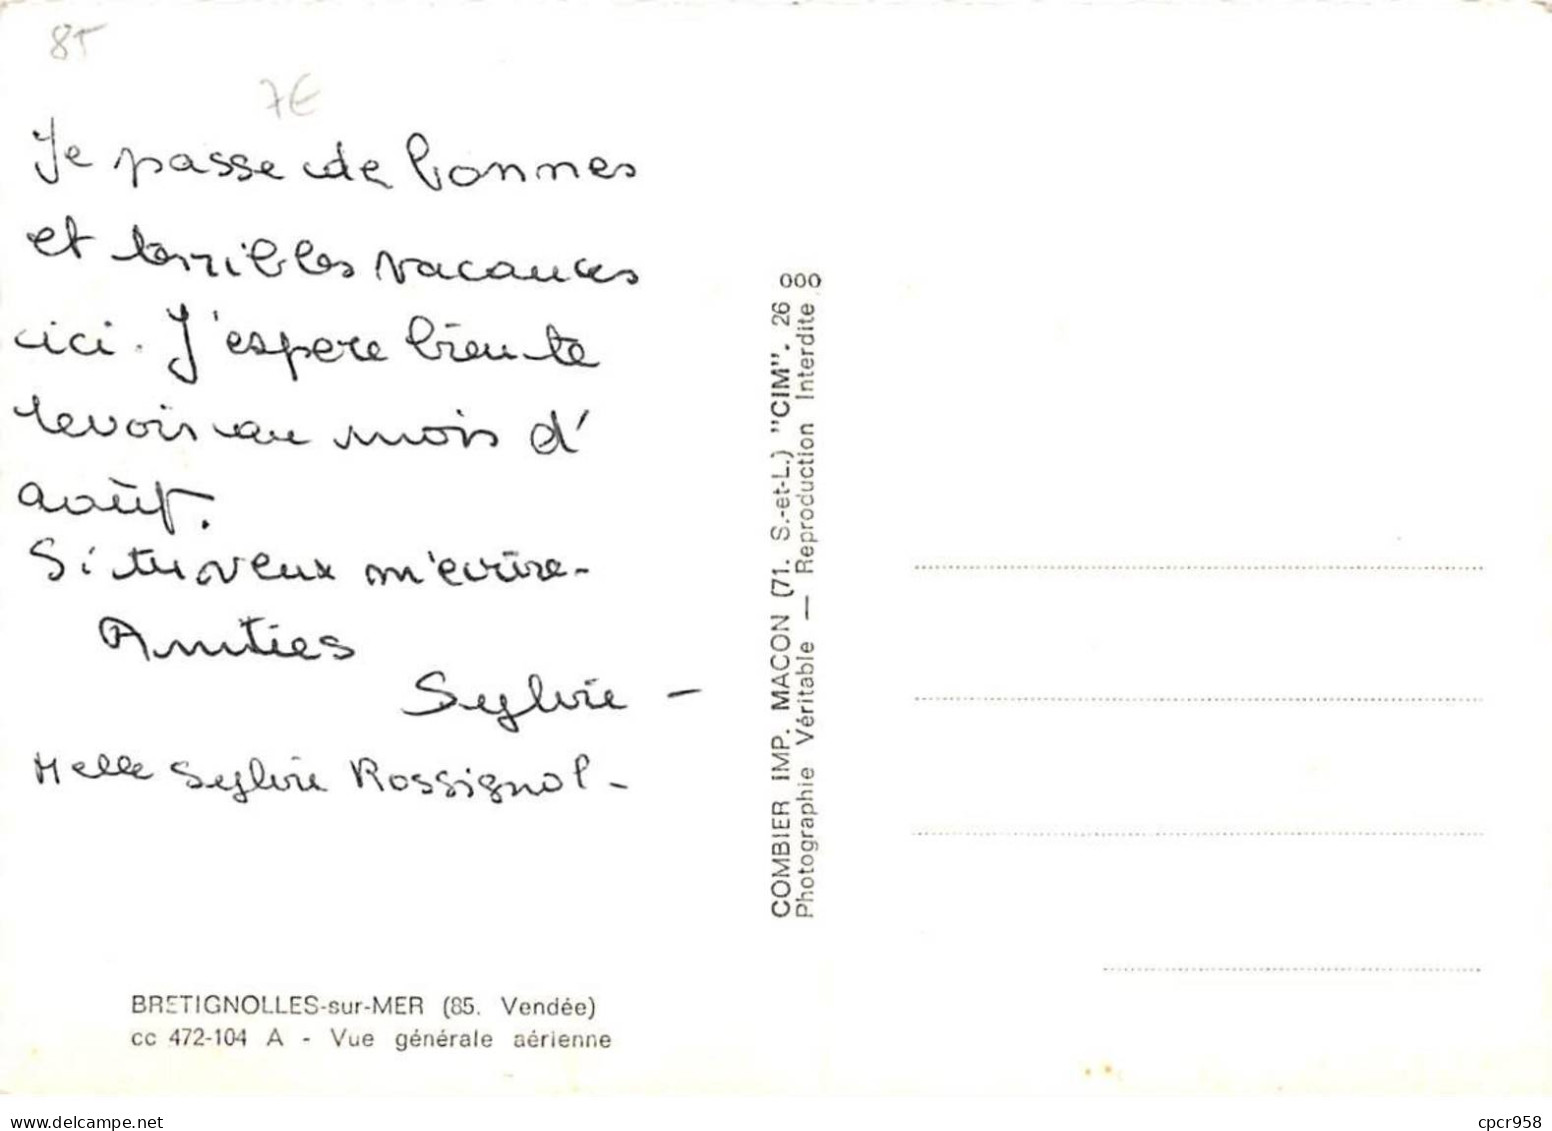 85
7€
Je passe de bonnes
et terribles vacances
ici. J'espere bien te
revoir au mois d'
août.
Si tu veux m'ecrire-
Amities
Sylvie -
Melle Sylvie Rossignol -
BRETIGNOLLES-sur-MER (85. Vendée)
cc 472-104 A - Vue générale aérienne
COMBIER IMP. MACON (71. S.-et-L.) "CIM". 26 000
Photographie Véritable — Reproduction Interdite
https://www.delcampe.net
cpcr958